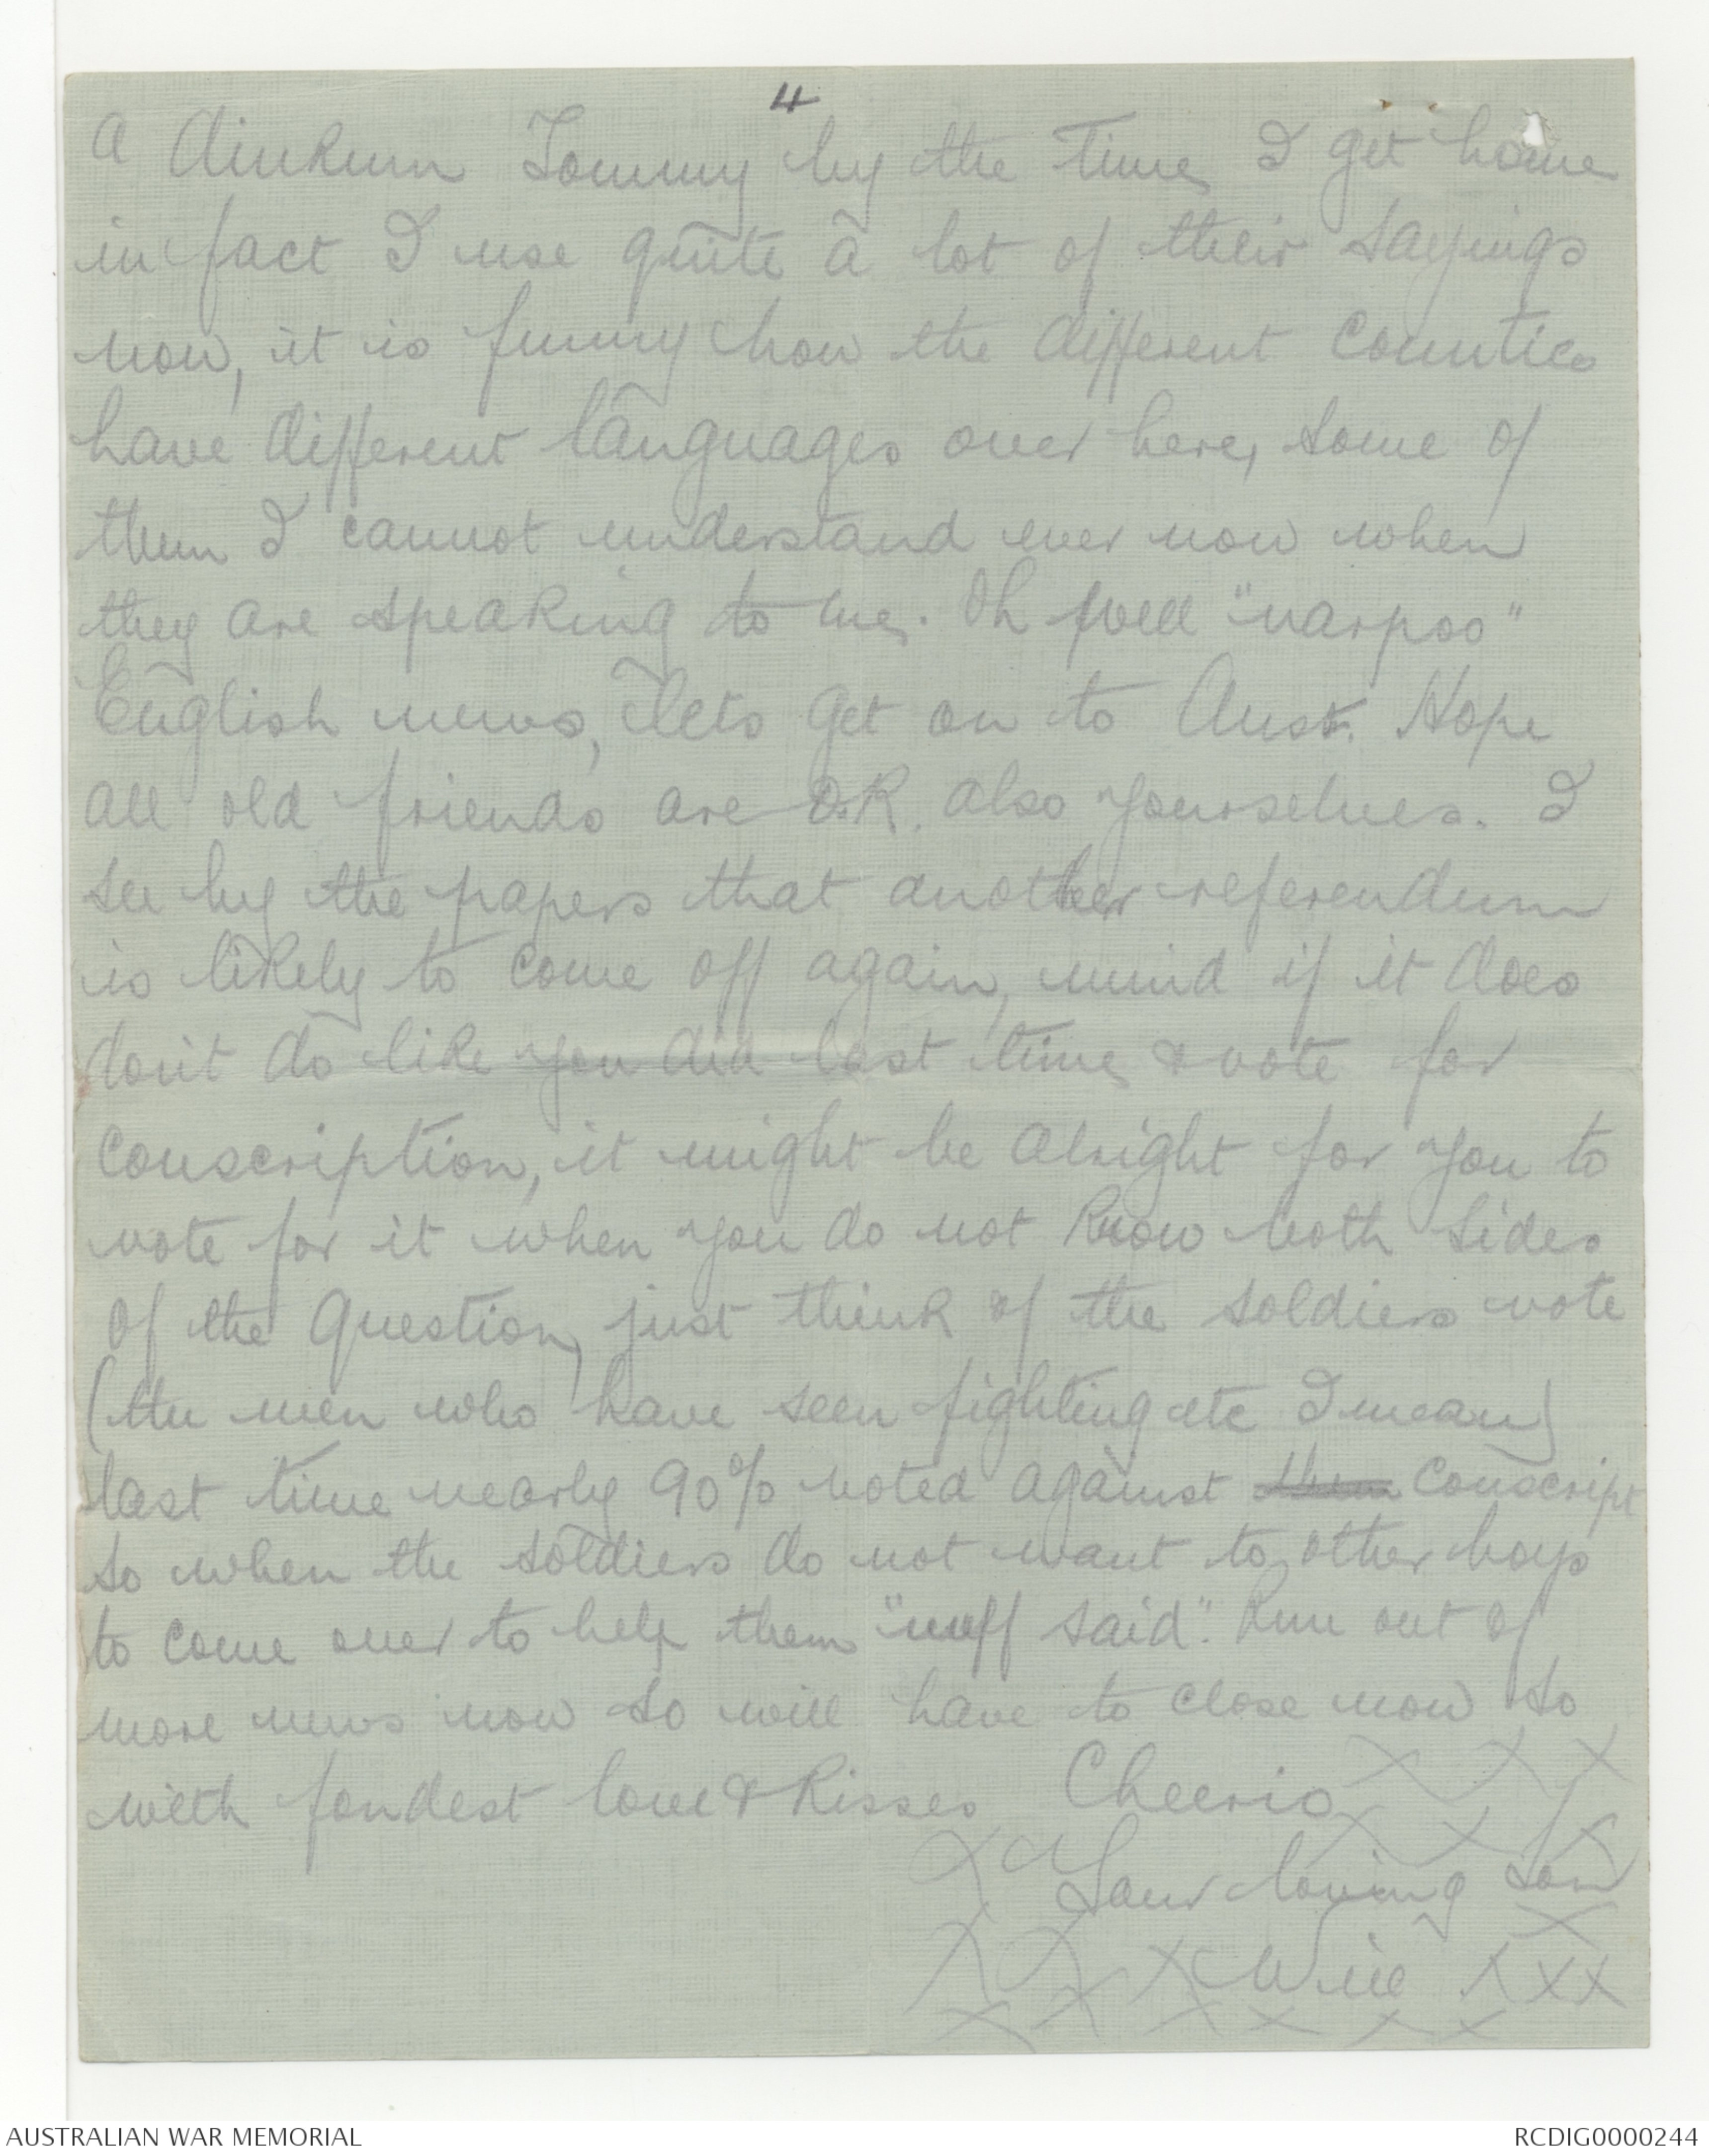 4
a dinkum Tommy by the time I get home
in fact I use quite a lot of their sayings
now, it is funny how the different counties
have different languages over here, some of
them I cannot understand ever now when
they are speaking to me. Oh well "narpoo"
English news, lets get on to Aust. Hope
all old friends are O.K. also yourselves. I
see by the papers that another referendum
is likely to come off again, mind if it does
don't do like you did last time & vote for
Conscription, it might be alright for you to
vote for it when you do not know both sides
of the question, just think of the soldiers vote
(the men who have seen fighting etc I mean)
last time nearly 90% voted against them Conscript
so when the soldiers do not want to, other boys
to come over to help them "nuff said". Run out of
more news now so will have to close now so
with fondest love & kisses Cheerio X X X
X X X
X Your loving son
X X X Will X X X X
X X X X X X
AUSTRALIAN WAR MEMORIAL
RCDIG0000244